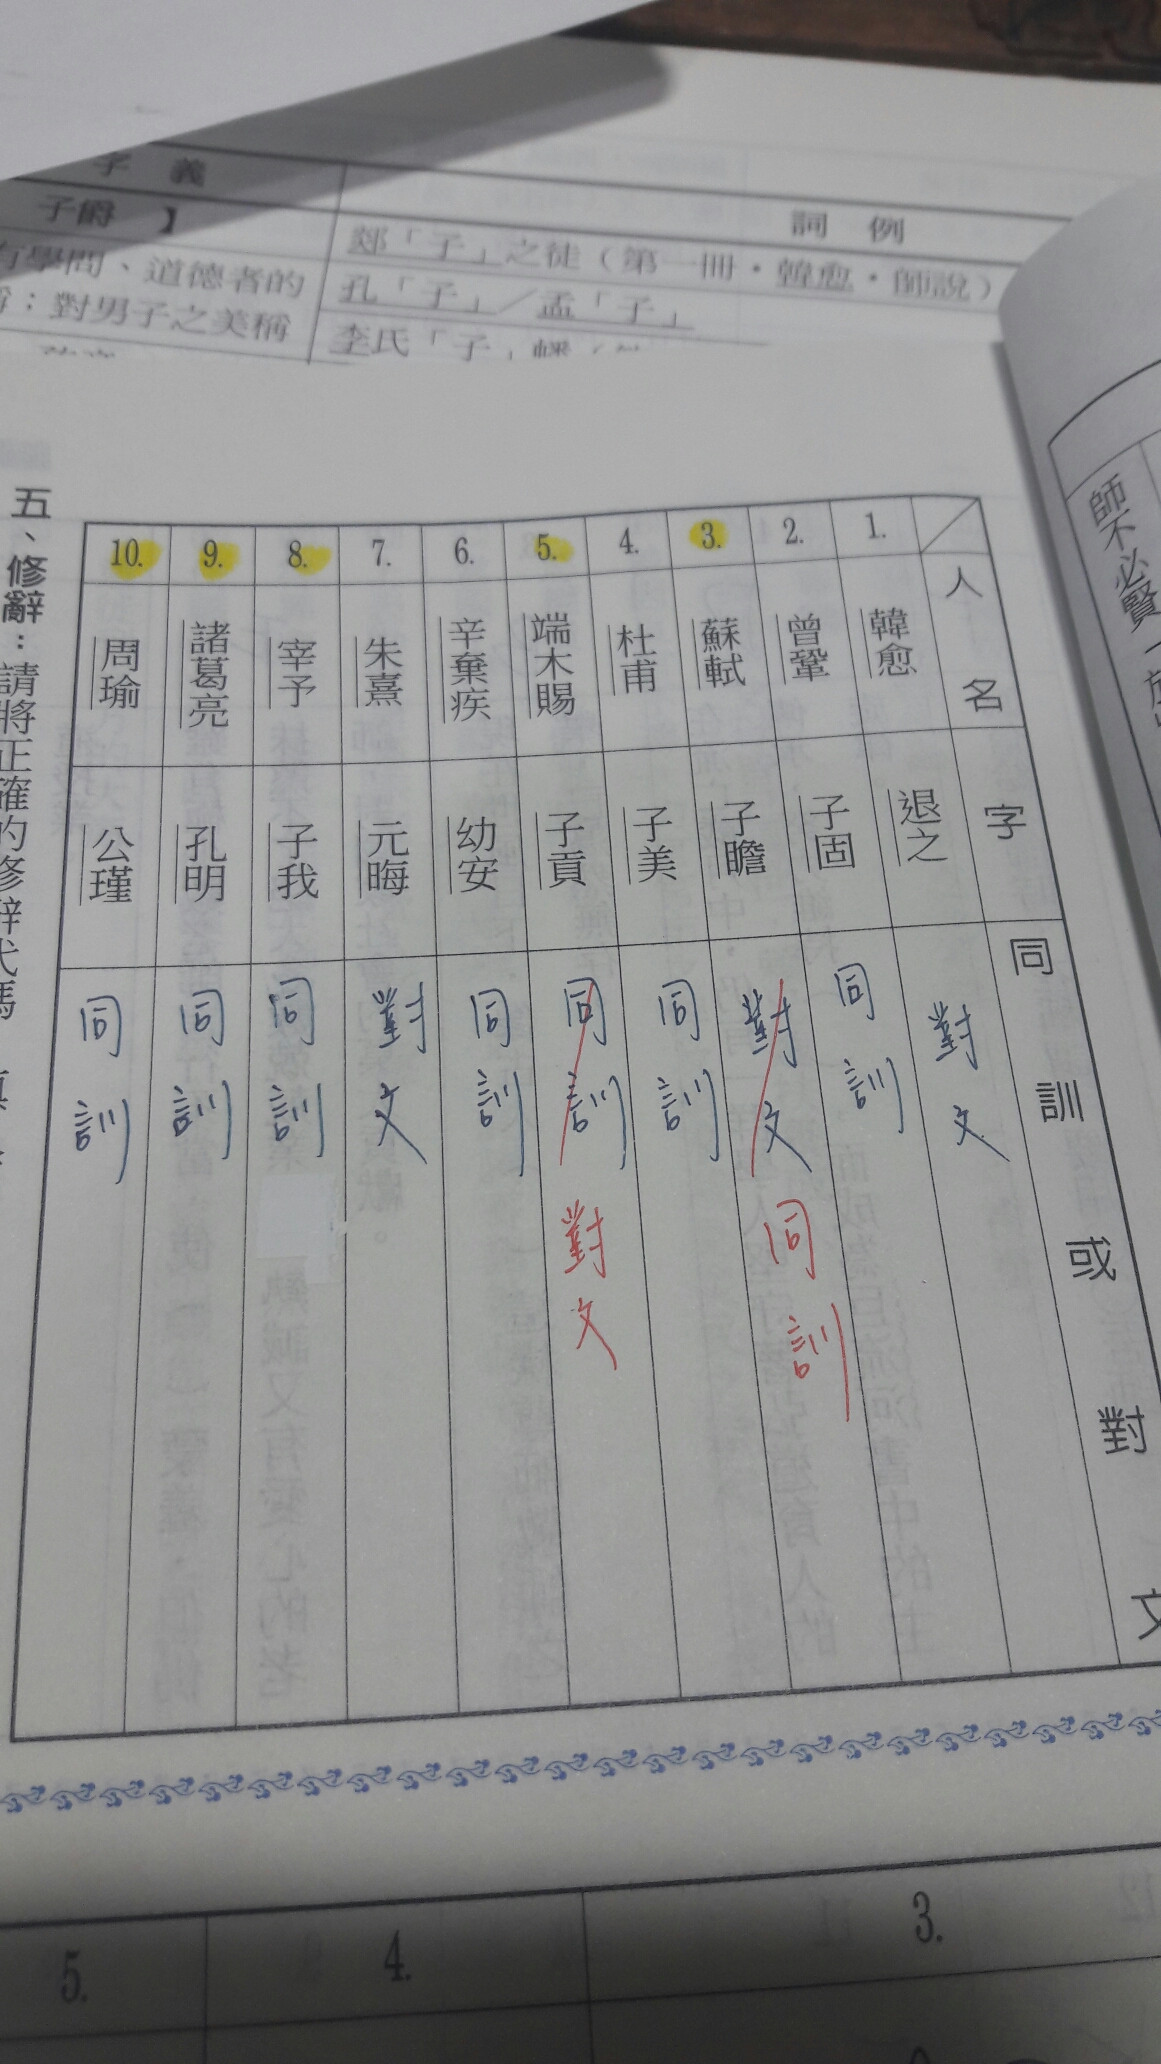 字義
詞例
子爵 】
鄰「子」之徒（第一冊・韓愈・師說）
有學問、道德者的
孔「子」／孟「子」
：對男子之美稱
李氏「子」蟠
師不必賢
人名
字
同訓或對文
1.
韓愈
退之
對文
2.
曾鞏
子固
同訓
3.
蘇軾
子瞻
對文
同訓
4.
杜甫
子美
同訓
5.
端木賜
子貢
同訓
對文
6.
辛棄疾
幼安
同訓
7.
朱熹
元晦
對文
8.
宰予
子我
同訓
9.
諸葛亮
孔明
同訓
10.
周瑜
公瑾
同訓
五、修辭：請將正確的修辭代碼
3.
4.
5.